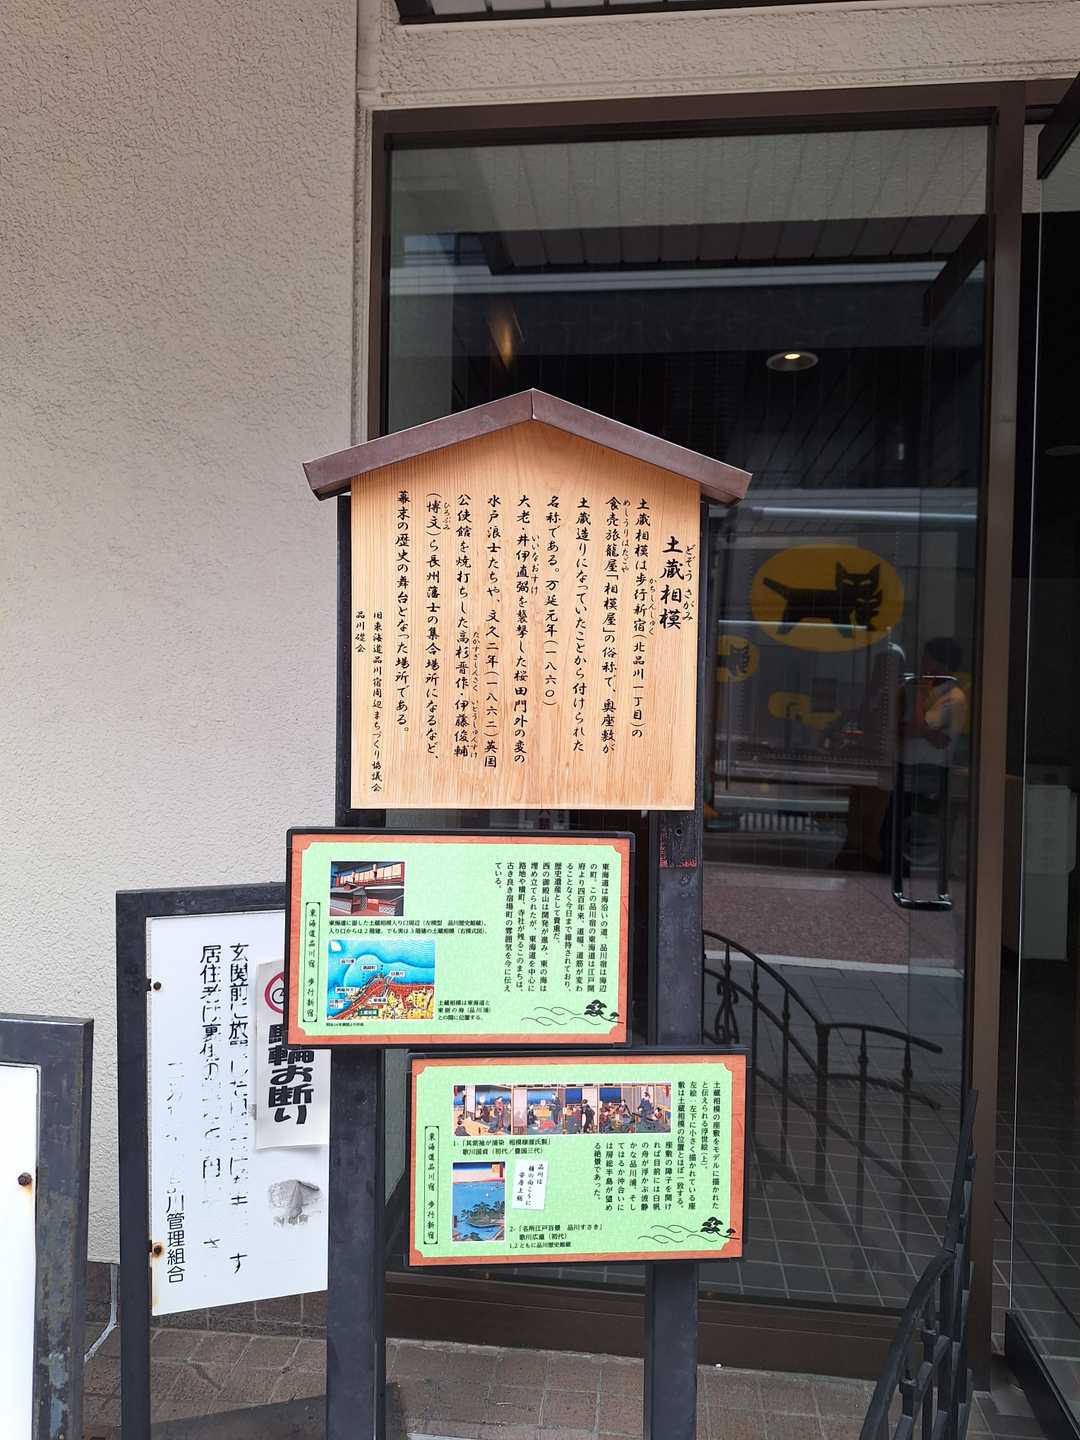 土蔵相模
どぞうさがみ
土蔵相模は歩行新宿(北品川一丁目)の
かちしんしゅく
食売旅籠屋「相模屋」の俗称で、奥座敷が
めしうりはたごや
土蔵造りになっていたことから付けられた
名称である。万延元年(一八六〇)
大老・井伊直弼を襲撃した桜田門外の変の
いいなおすけ
水戸浪士たちや、文久二年(一八六二)英国
公使館を焼打ちした高杉晋作・伊藤俊輔
たかすぎしんさく いとうしゅんすけ
(博文)ら長州藩士の集合場所になるなど、
ひろぶみ
幕末の歴史の舞台となった場所である。
旧東海道品川宿周辺まちづくり協議会
品川礎会
東海道は海沿いの道、品川宿は海辺
の町。この品川宿の東海道は江戸開
府より四百年来、道幅、道筋が変わ
ることなく今日まで維持されており、
歴史遺産として貴重だ。
西の御殿山は開発が進み、東の海は
埋め立てられたが、東海道を中心に
路地や横町、寺社が残るこのまちは、
古き良き宿場町の雰囲気を今に伝え
ている。
東海道に面した土蔵相模入り口周辺(左模型 品川歴史館蔵)。
入り口からは2階建、でも実は3階建の土蔵相模(右模式図)。
土蔵相模は東海道と
東側の海(品川浦)
との間に位置する。
東海道品川宿 歩行新宿
土蔵相模の座敷をモデルに描かれた
と伝えられる浮世絵(上)。
左絵…左下に小さく描かれている座
敷は土蔵相模の位置とほぼ一致する。
座敷の障子を開け
れば目前には白帆
の舟が浮かぶ波静
かな品川浦、そし
てはるか沖合いに
は房総半島が望め
る絶景であった。
1-「其紫袖が浦染 相模様源氏製」
歌川国貞(初代/豊国三代)
品川は
膳の向こうに
安房上総
2-「名所江戸百景 品川すさき」
歌川広重(初代)
1,2ともに品川歴史館蔵
東海道品川宿 歩行新宿
玄関前に放
居住者は裏
管理組合
駐輪お断り